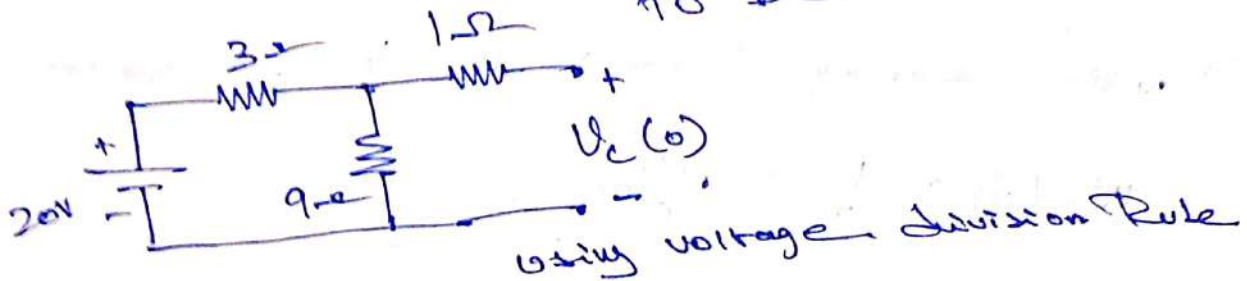 3Ω
1Ω
+
+
V_c (0)
20V
-
9Ω
-
using voltage division Rule